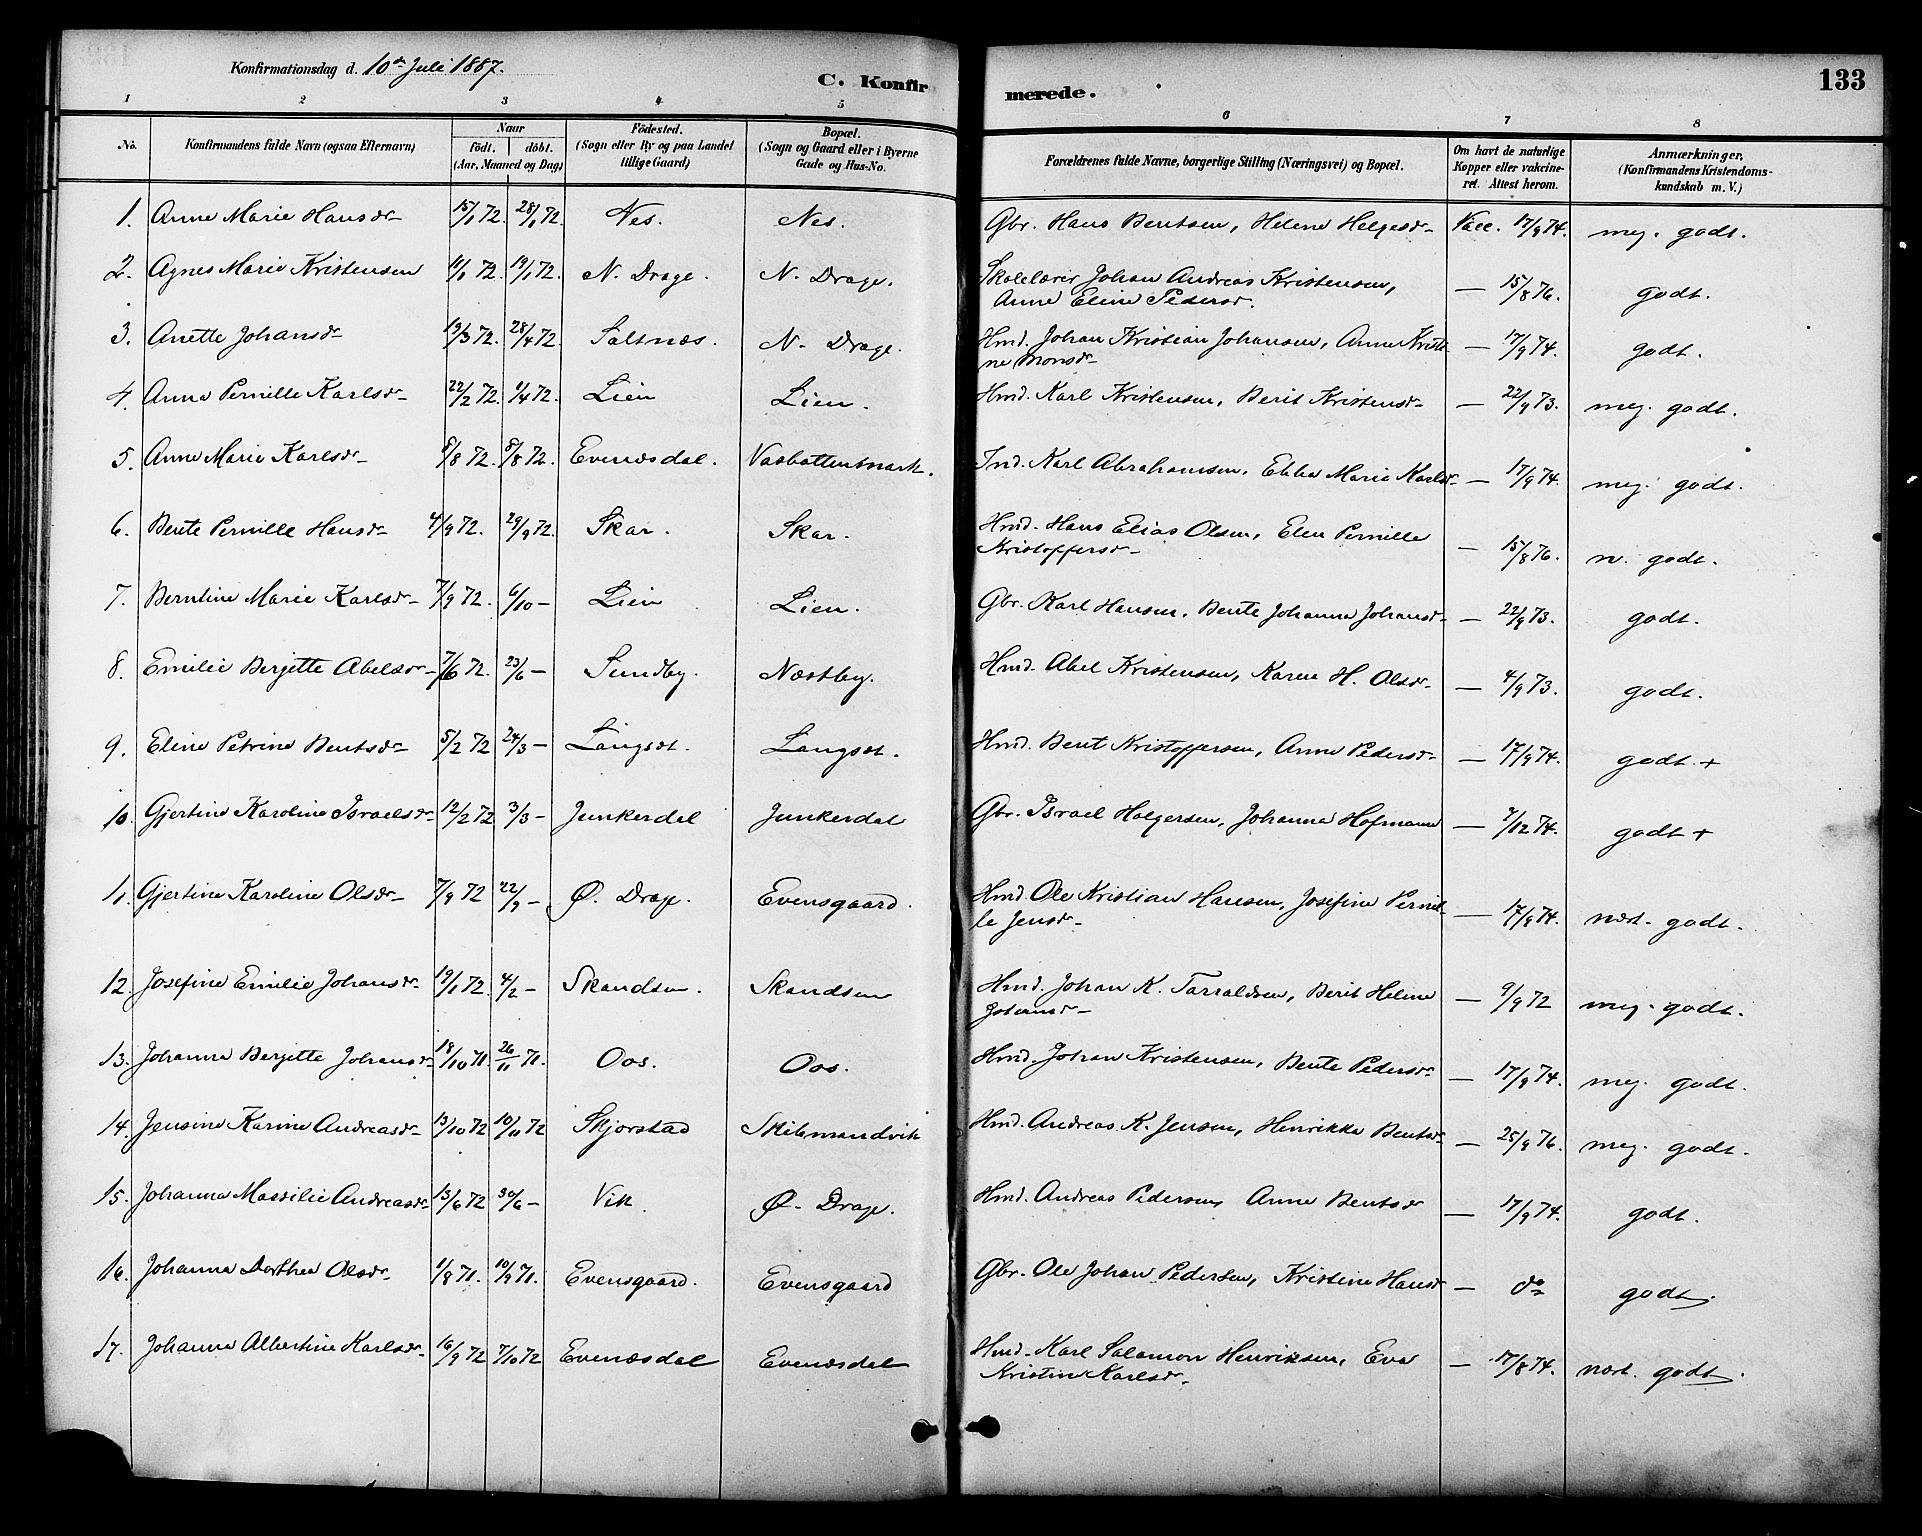 Konfirmationsdag d. 10de Juli 1887.
C. Konfirmerede.
133
1 2 3 4 5 6 7 8
No. | Konfirmandens fulde Navn (ogsaa Efternavn) | Naar født. døbt. (Aar, Maaned og Dag) | Fødested. (Sogn eller By og paa Landet tillige Gaard) | Bopæl. (Sogn og Gaard eller i Byerne Gade og Hus-No. | Forældrenes fulde Navne, borgerlige Stilling (Næringsvei) og Bopæl. | Om havt de naturlige Kopper eller vakcineret. Attest herom. | Anmærkninger. (Konfirmandens Kristendomskundskab m. V.)
1. Anne Marie Hansdr 15/1 72. 28/1 72. Nes. Nes. Gbr. Hans Bentsen, Helene Helgesdr Vacc. 17/9 74. meg. godt.
2. Agnes Marie Kristensen 11/1 72. 19/1 72. N. Drage. N. Drage. Skolelærer Johan Andreas Kristensen, Anne Eline Pedersd. — 15/8 76. godt.
3. Anette Johansdr 19/3 72. 28/4 72. Saltnæs. N. Drage. Hmd. Johan Kristian Johansen, Anne Kristine Monsdr — 17/9 74. godt.
4. Anna Pernille Karlsdr 22/2 72. 1/4 72. Lien Lien. Hmd. Karl Kristensen, Berit Kristensdr — 22/9 73. meg. godt.
5. Anne Marie Karlsdr 8/8 72. 8/8 72. Evenæsdal. Vasbottenmark. Ind. Karl Abrahamsen, Ebba Marie Karlsdr — 17/9 74. meg. godt.
6. Bente Pernille Hansdr 4/9 72. 29/9 72. Skar. Skar. Hmd. Hans Elias Olsen, Elen Pernille Kristoffersdr — 15/8 76. n. godt.
7. Berntine Marie Karlsdr 7/9 72. 6/10 — Lien Lien. Gbr. Karl Hansen, Bente Johanna Johansdr — 22/9 73. godt.
8. Emilie Berjette Abelsdr 7/6 72. 23/6 — Sundby. Næstby. Hmd. Abel Kristensen, Karen H. Olsdr — 4/9 73. godt.
9. Eline Petrine Bentsdr 5/2 72 24/3 — Langset. Langset. Hmd. Bent Kristoffersen, Anne Pedersdr — 17/9 74. godt. +
10. Gjertine Karoline Israelsdr 12/2 72 3/3 — Junkerdal Junkerdal Gbr. Israel Holgersen, Johanna Hofmann — 7/12 74. godt +
11. Gjertine Karoline Olsdr 7/9 72 22/9 — Ø. Drage. Evensgaard. Hmd. Ole Kristian Hansen, Josefine Pernille Jensdr — 17/9 74. næst. godt.
12. Josefine Emilie Johansdr 19/1 72. 4/2 — Skandsen. Skandsen Hmd. Johan K. Tarraldsen, Berit Helene — 9/9 72 meg. godt.
13. Johanna Berjette Johansdr 18/10 71. 26/11 71. Oos. Oos. Hmd. Johan Kristensen, Bente Pedersdr — 17/9 74. meg. godt.
14. Jensine Karine Andreasdr 13/10 72 10/11 72 Skjørstad Skibmandvik Hmd. Andreas K. Jensen, Henrikka Bentsdr — 25/9 76. meg. godt.
15. Johanna Massilie Andreasdr 13/6 72 30/6 — Vik. Ø. Drage. Hmd. Andreas Pedersen, Anne Bentsdr — 17/9 74. godt.
16. Johanna Dorthea Olsdr 1/8 71. 10/9 71. Evensgaard. Evensgaard Gbr. Ole Johan Pedersen, Kristine Hansdr — do godt.
17. Johanna Albertine Karlsdr 16/9 72 7/10 72 Evenæsdal Evenæsdal Hmd. Karl Salamon Henriksen, Eva Kristine Karlsdr — 17/8 74. næst. godt.